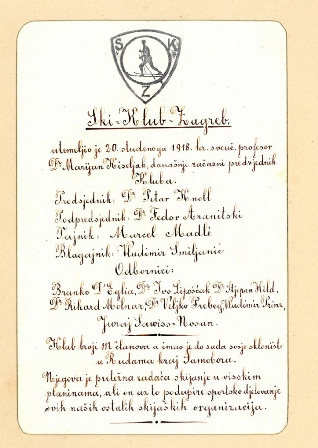 S K
Z
Ski-Klub-Zagreb.
utemeljio je 20. studenoga 1918. kr. sveuč. profesor
Dr Marijan Kiseljak, današnji začasni predsjednik
Kluba.
Predsjednik: Dr Petar Knoll
Podpredsjednik: Dr Fedor Aranitski
Tajnik: Marcel Madlé
Blagajnik: Vladimir Smiljanić
Odbornici:
Branko D'Eglia, Dr Ivo Lipovšćak, Dr Stjepan Wild,
Dr Rikard Molnar, Dr Veljko Prebeg, Vladimir Prinz,
Juraj Sawiss-Nosan.
Klub broji članova a imao je do sada svoje sklonište
u Rudama kraj Samobora.
Njegova je pretežna zadaća skijanje u visokim
planinama, ali on uz to podupire sportsko djelovanje
svih naših ostalih skijaških organizacija.